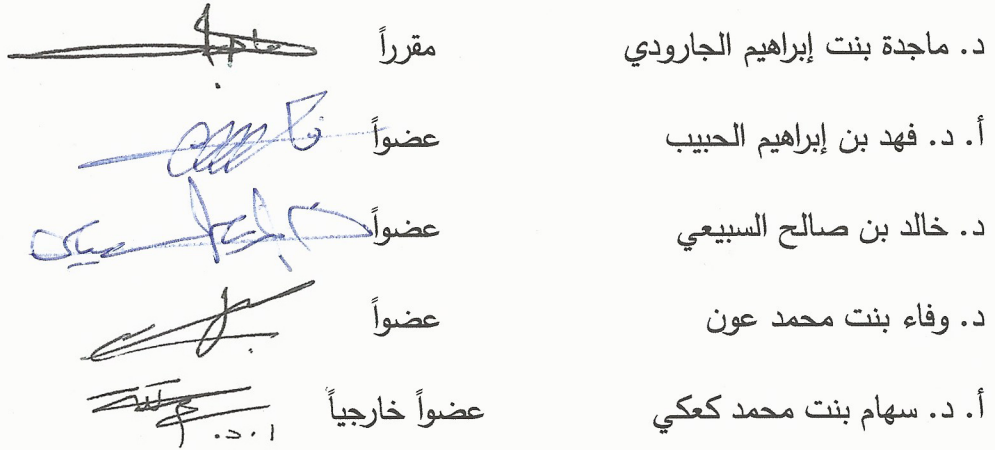 د. ماجدة بنت إبراهيم الجارودي مقرراً
أ. د. فهد بن إبراهيم الحبيب عضواً
د. خالد بن صالح السبيعي عضواً
د. وفاء بنت محمد عون عضواً
أ. د. سهام بنت محمد كعكي عضواً خارجياً
أ.د.